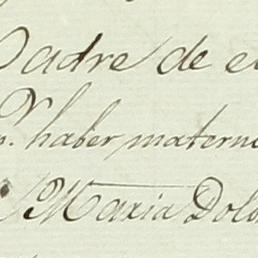 Padre de e
p.r haber matern
Maria Dolo